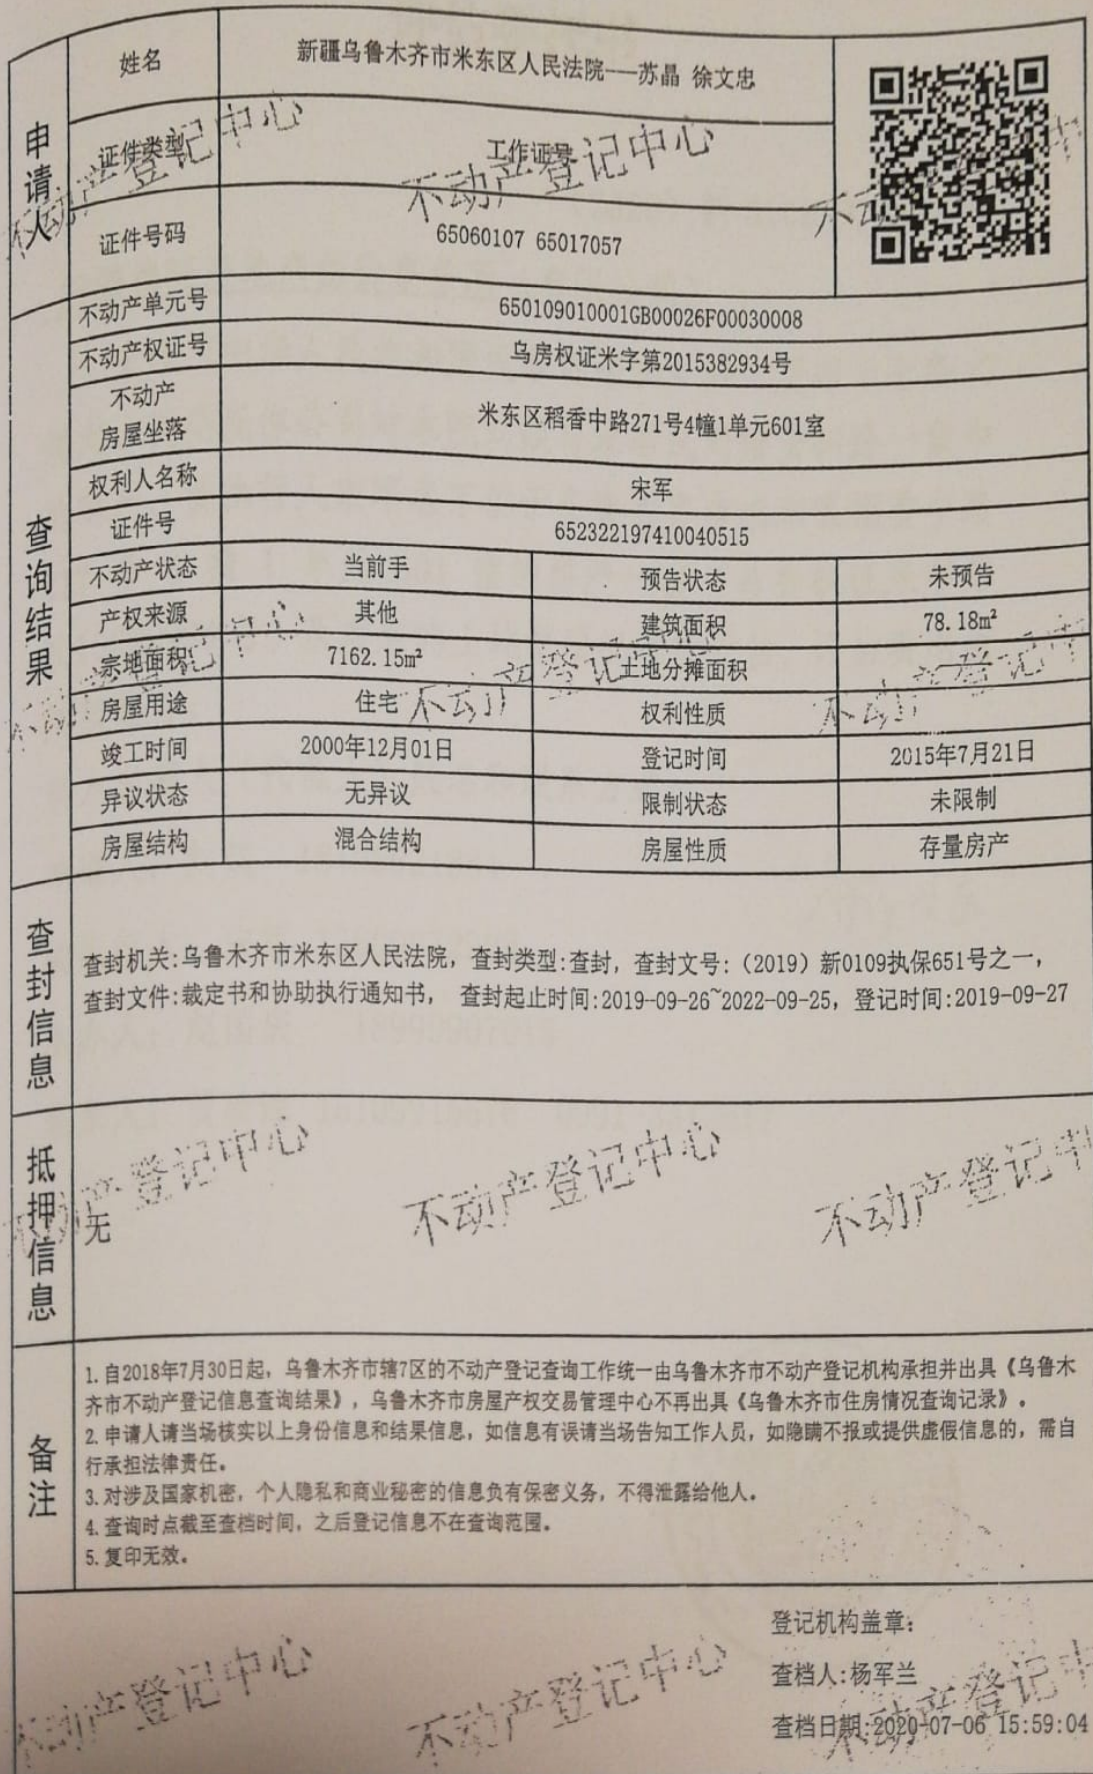 申请人
姓名
新疆乌鲁木齐市米东区人民法院——苏晶 徐文忠
证件类型
工作证号
证件号码
65060107 65017057
查询结果
不动产单元号
650109010001GB00026F00030008
不动产权证号
乌房权证米字第2015382934号
不动产
房屋坐落
米东区稻香中路271号4幢1单元601室
权利人名称
宋军
证件号
652322197410040515
不动产状态 当前手 预告状态 未预告
产权来源 其他 建筑面积 78.18m²
宗地面积 7162.15m² 土地分摊面积
房屋用途 住宅 权利性质
竣工时间 2000年12月01日 登记时间 2015年7月21日
异议状态 无异议 限制状态 未限制
房屋结构 混合结构 房屋性质 存量房产
查封信息
查封机关:乌鲁木齐市米东区人民法院，查封类型:查封，查封文号:（2019）新0109执保651号之一，
查封文件:裁定书和协助执行通知书， 查封起止时间:2019-09-26~2022-09-25，登记时间:2019-09-27
抵押信息
无
备注
1.自2018年7月30日起，乌鲁木齐市辖7区的不动产登记查询工作统一由乌鲁木齐市不动产登记机构承担并出具《乌鲁木
齐市不动产登记信息查询结果》，乌鲁木齐市房屋产权交易管理中心不再出具《乌鲁木齐市住房情况查询记录》。
2.申请人请当场核实以上身份信息和结果信息，如信息有误请当场告知工作人员，如隐瞒不报或提供虚假信息的，需自
行承担法律责任。
3.对涉及国家机密，个人隐私和商业秘密的信息负有保密义务，不得泄露给他人。
4.查询时点截至查档时间，之后登记信息不在查询范围。
5.复印无效。
登记机构盖章:
查档人:杨军兰
查档日期:2020-07-06 15:59:04
不动产登记中心
不动产登记中心
不动产登记中
不动产登记中心
不动产登记中心
不动产登记中
不动产登记中心
不动产登记中心
不动产登记中
不动产登记中心
不动产登记中心
不动产登记中